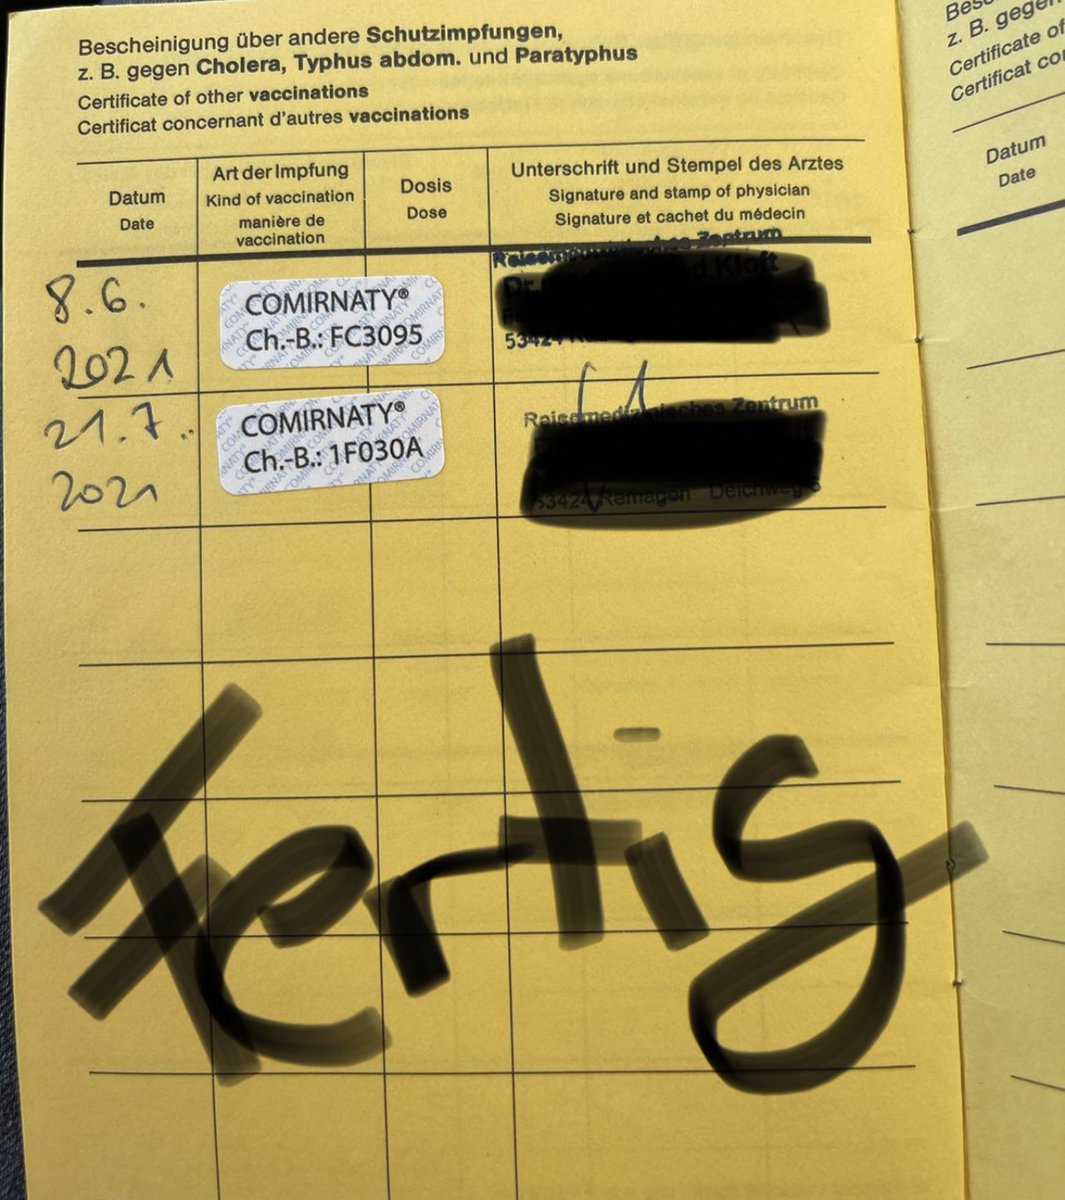 Bescheinigung über andere Schutzimpfungen,
z. B. gegen Cholera, Typhus abdom. und Paratyphus
Certificate of other vaccinations
Certificat concernant d'autres vaccinations
Datum
Date
Art der Impfung
Kind of vaccination
manière de
vaccination
Dosis
Dose
Unterschrift und Stempel des Arztes
Signature and stamp of physician
Signature et cachet du médecin
8.6.
2021
COMIRNATY®
Ch.-B.: FC3095
Zentrum
d Kloft
Dr.
21.7..
2021
COMIRNATY®
Ch.-B.: 1F030A
Reisemedizinisches Zentrum
53424 Remagen Deichweg 6
Fertig
z. B. gegen
Certificate of
Datum
Date